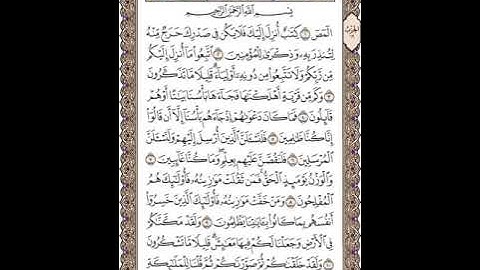 بِسْمِ ٱللَّهِ ٱلرَّحْمَٰنِ ٱلرَّحِيمِ
الٓمٓصٓ ١ كِتَٰبٌ أُنزِلَ إِلَيْكَ فَلَا يَكُن فِى صَدْرِكَ حَرَجٌ مِّنْهُ
لِتُنذِرَ بِهِۦ وَذِكْرَىٰ لِلْمُؤْمِنِينَ ٢ ٱتَّبِعُوا۟ مَآ أُنزِلَ إِلَيْكُم
مِّن رَّبِّكُمْ وَلَا تَتَّبِعُوا۟ مِن دُونِهِۦٓ أَوْلِيَآءَ ۗ قَلِيلًا مَّا تَذَكَّرُونَ
٣ وَكَم مِّن قَرْيَةٍ أَهْلَكْنَٰهَا فَجَآءَهَا بَأْسُنَا بَيَٰتًا أَوْ هُمْ
قَآئِلُونَ ٤ فَمَا كَانَ دَعْوَىٰهُمْ إِذْ جَآءَهُم بَأْسُنَآ إِلَّآ أَن قَالُوٓا۟
إِنَّا كُنَّا ظَٰلِمِينَ ٥ فَلَنَسْـَٔلَنَّ ٱلَّذِينَ أُرْسِلَ إِلَيْهِمْ وَلَنَسْـَٔلَنَّ
ٱلْمُرْسَلِينَ ٦ فَلَنَقُصَّنَّ عَلَيْهِم بِعِلْمٍ ۖ وَمَا كُنَّا غَآئِبِينَ ٧
وَٱلْوَزْنُ يَوْمَئِذٍ ٱلْحَقُّ ۚ فَمَن ثَقُلَتْ مَوَٰزِينُهُۥ فَأُو۟لَٰٓئِكَ هُمُ
ٱلْمُفْلِحُونَ ٨ وَمَنْ خَفَّتْ مَوَٰزِينُهُۥ فَأُو۟لَٰٓئِكَ ٱلَّذِينَ خَسِرُوٓا۟
أَنفُسَهُم بِمَا كَانُوا۟ بِـَٔايَٰتِنَا يَظْلِمُونَ ٩ وَلَقَدْ مَكَّنَّٰكُمْ
فِى ٱلْأَرْضِ وَجَعَلْنَا لَكُمْ فِيهَا مَعَٰيِشَ ۗ قَلِيلًا مَّا تَشْكُرُونَ
١٠ وَلَقَدْ خَلَقْنَٰكُمْ ثُمَّ صَوَّرْنَٰكُمْ ثُمَّ قُلْنَا لِلْمَلَٰٓئِكَةِ